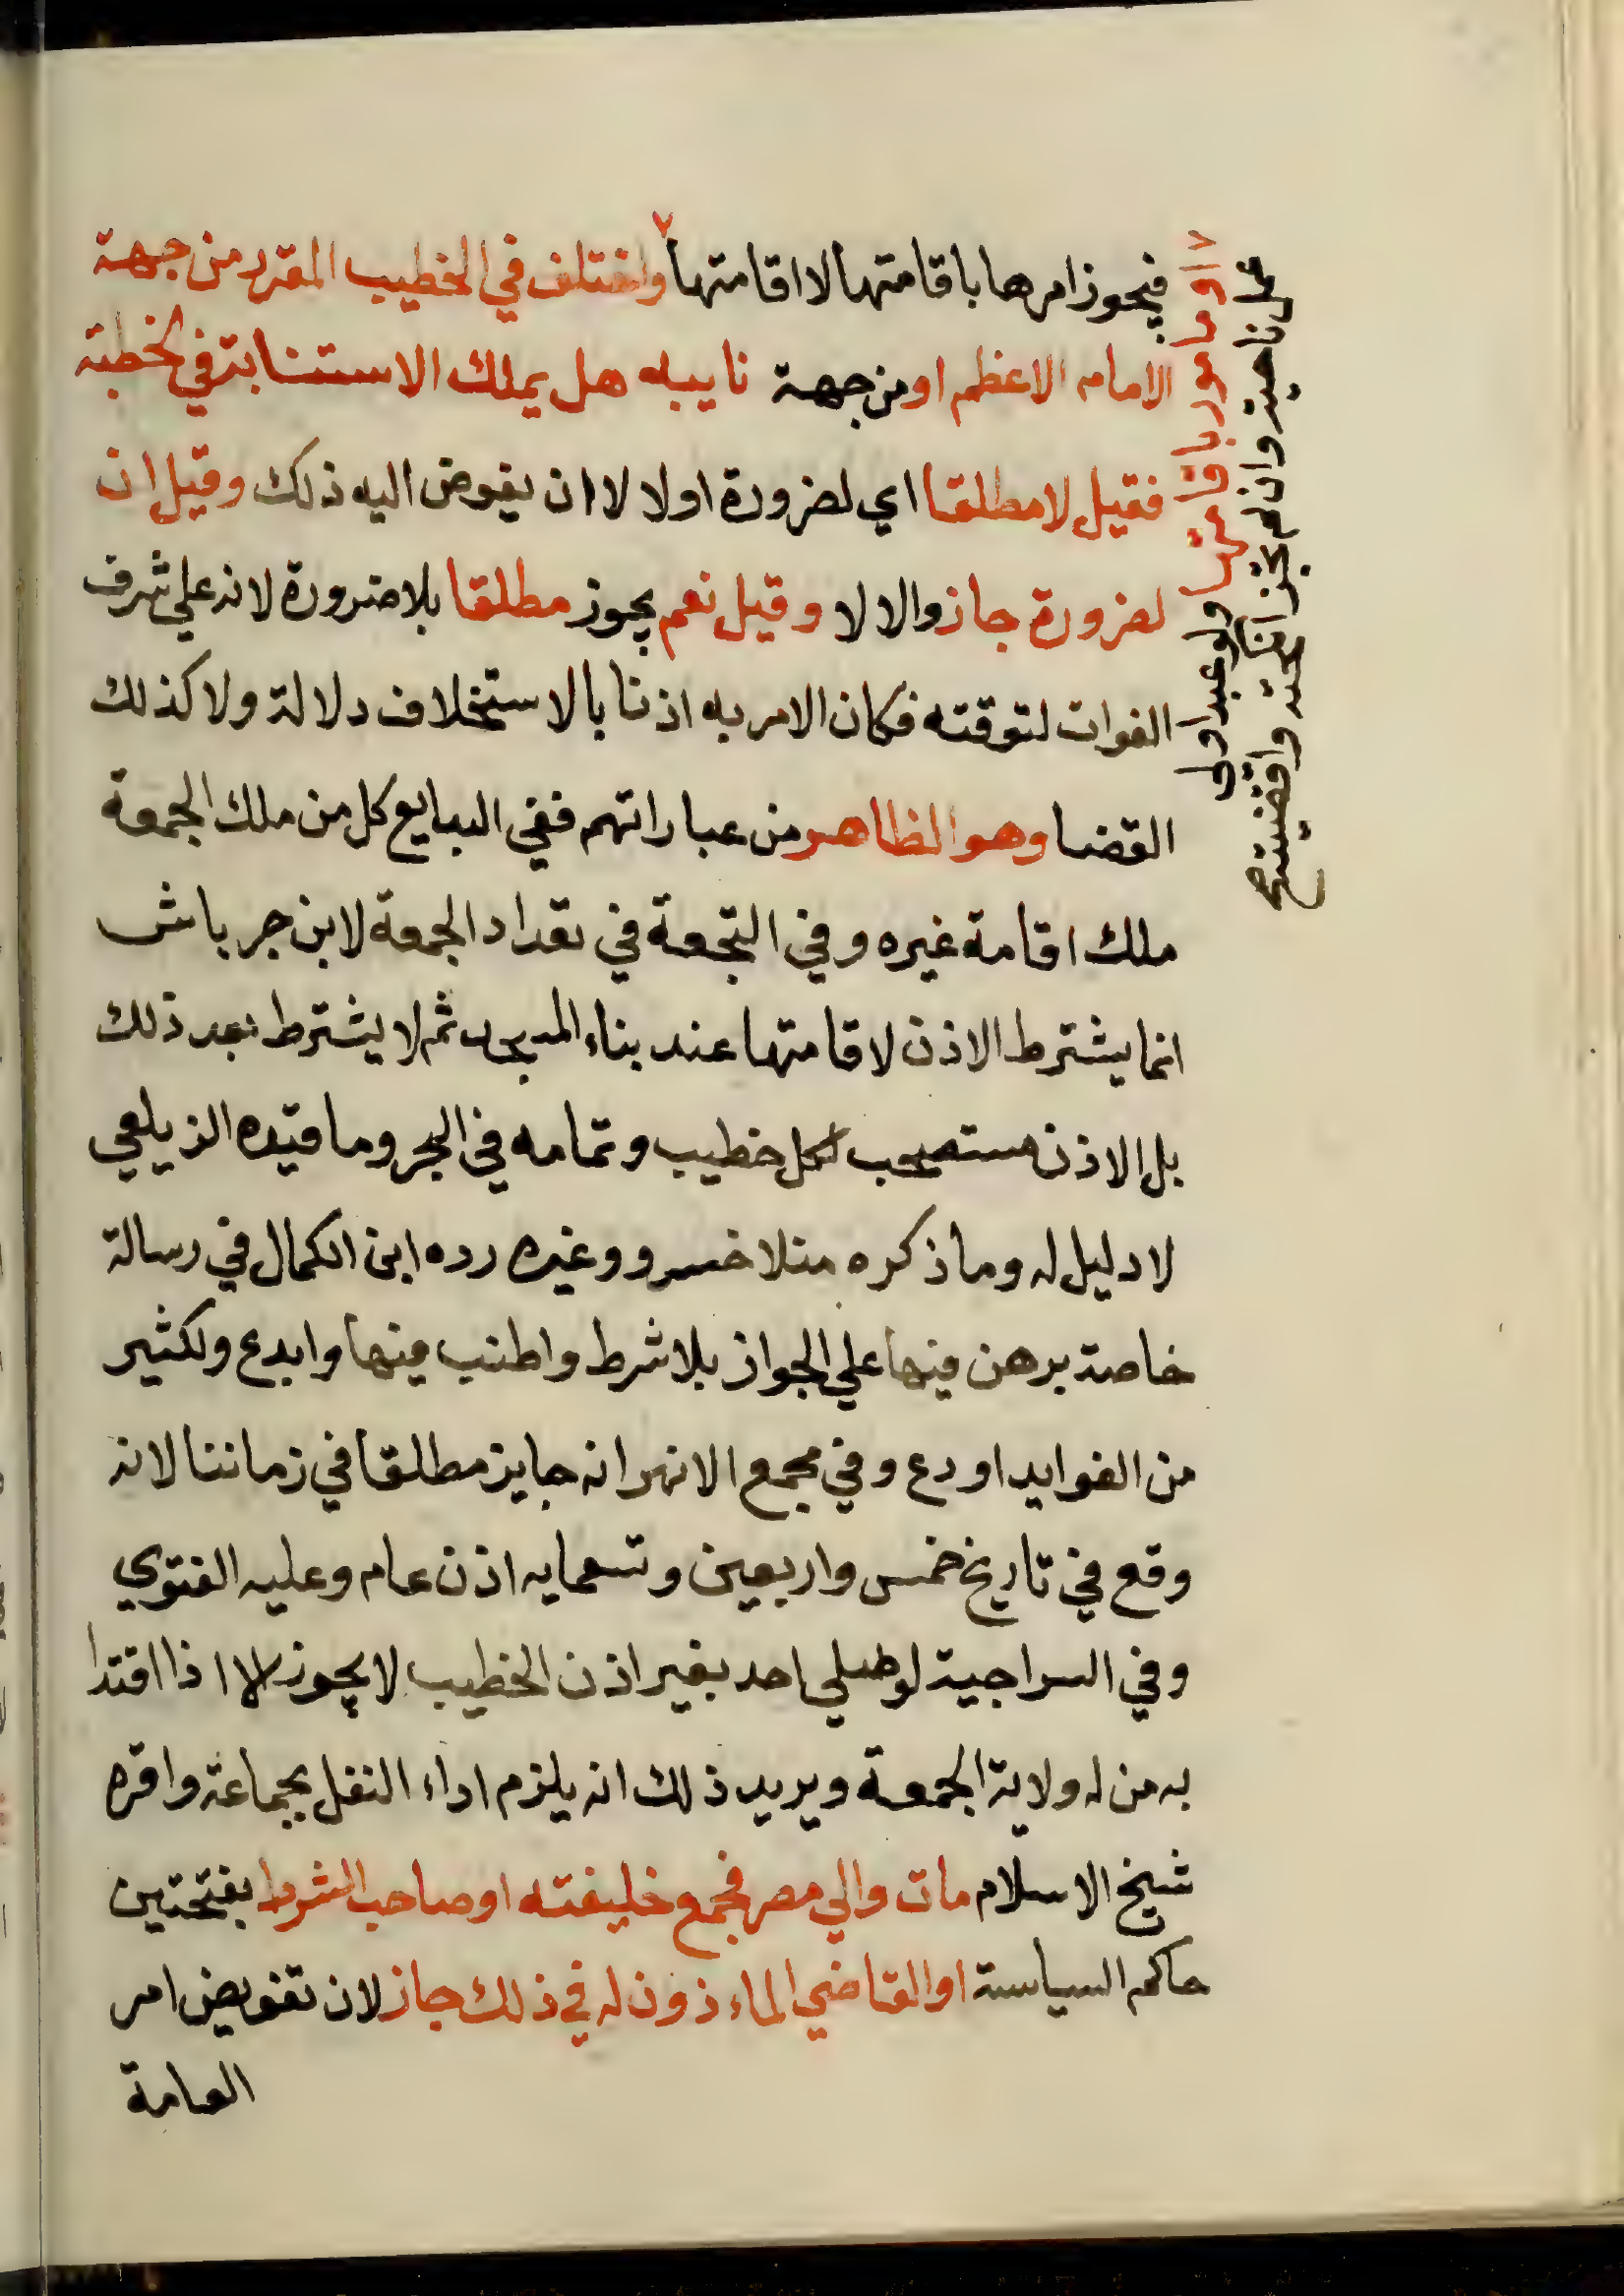 فيجوز امرها باقامتها لا اقامتها ٧ واختلف في الخطيب المقرر من جهة
الامام الاعظم او من جهة نايبه هل يملك الاستنابة في الخطبة
فقيل لا مطلقا اي لضرورة اولا لا ان يفوض اليه ذلك وقيل ان
لضرورة جاز والا لا وقيل نعم يجوز مطلقا بلا ضرورة لانه علي شرف
الفوات لتوقته فكان الامر به اذنا بالاستخلاف دلالة ولا كذلك
القضا وهو الظاهر من عباراتهم ففي البدايع كل من ملك الجمعة
ملك اقامة غيره وفي النجعة في تعداد الجمعة لابن جرباش
انما يشترط الاذن لاقامتها عند بناء المسجد ثم لا يشترط بعد ذلك
بل الاذن مستصحب لكل خطيب وتمامه في البحر وما قيده الزيلعي
لا دليل له وما ذكره منلا خسرو وغيره رده ابن الكمال في رسالة
خاصة برهن فيها علي الجواز بلا شرط واطنب فيها وابدع ولكثير
من الفوايد اودع وفي مجمع الانهر انه جايز مطلقا في زماننا لانه
وقع في تاريخ خمس واربعين وتسعمايه اذن عام وعليه الفتوي
وفي السراجية لو صلي احد بغير اذن الخطيب لا يجوز الا اذا اقتدا
به من له ولاية الجمعة ويريد ذلك انه يلزم اداء النفل بجماعة واقره
شيخ الاسلام مات والي مصر فجمع خليفته او صاحب الشرط بفتحتين
حاكم السياسة او القاضي الماءذون له في ذلك جاز لان تفويض امر
العامة
٧ او مامور باقامتها ولو عبدا ولي
عمل ناحية وان لم تجز انكحته واقضيته صح